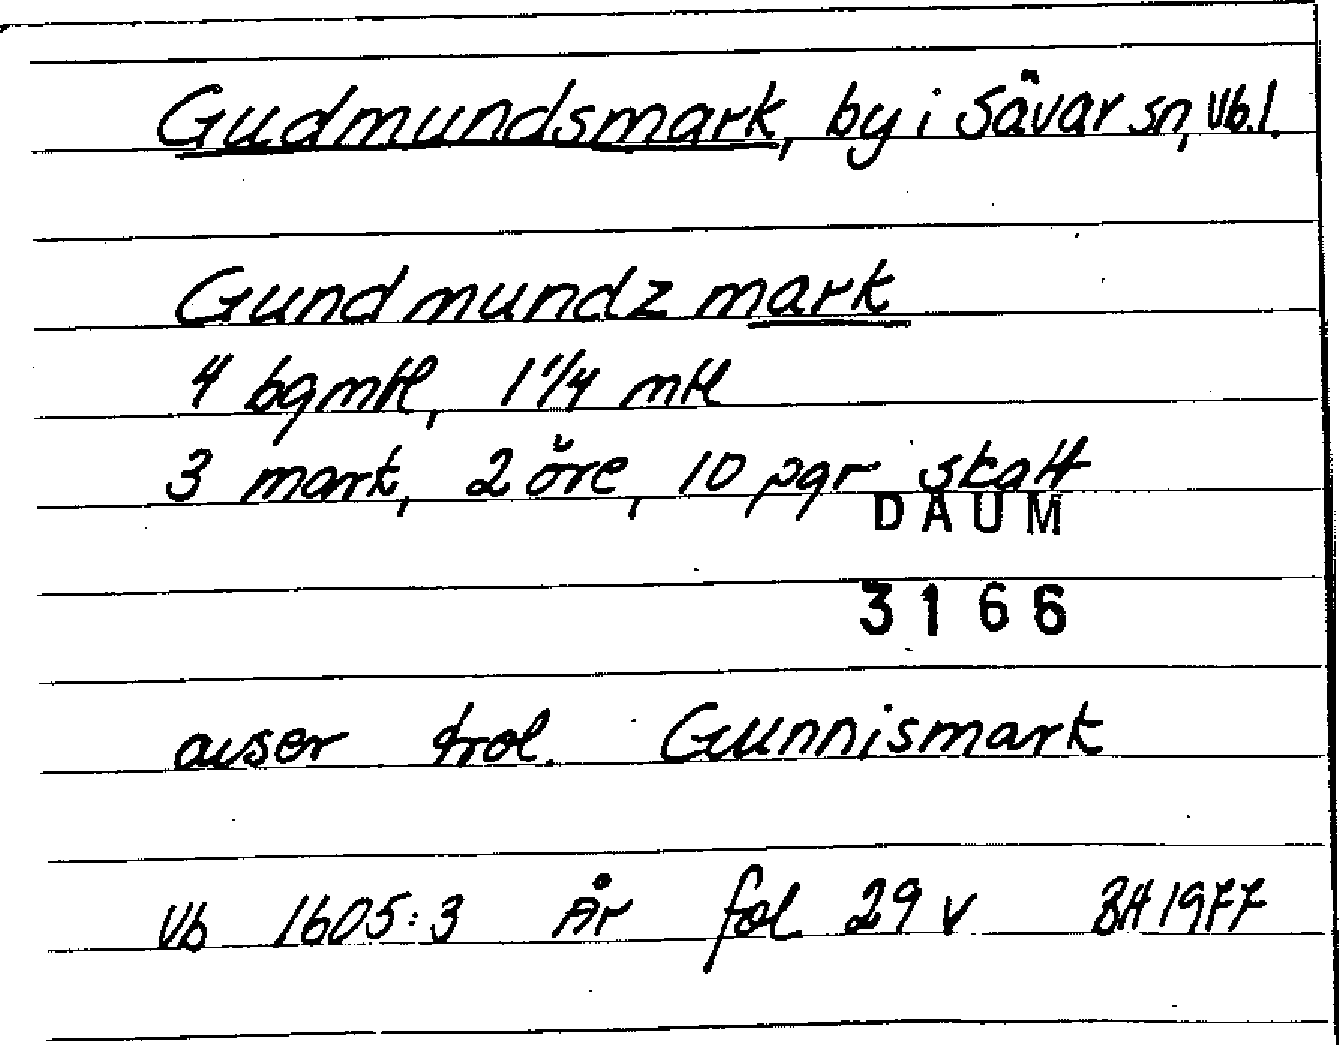 Gudmundsmark, by i Sävar sn, Vb.l.
Gundmundz mark
4 bgmtl, 1 1/4 mtl
3 mark, 2 öre, 10 pgr skatt
DAUM
3166
avser trol. Gunnismark
Vb 1605:3 År fol 29 v BH 1977